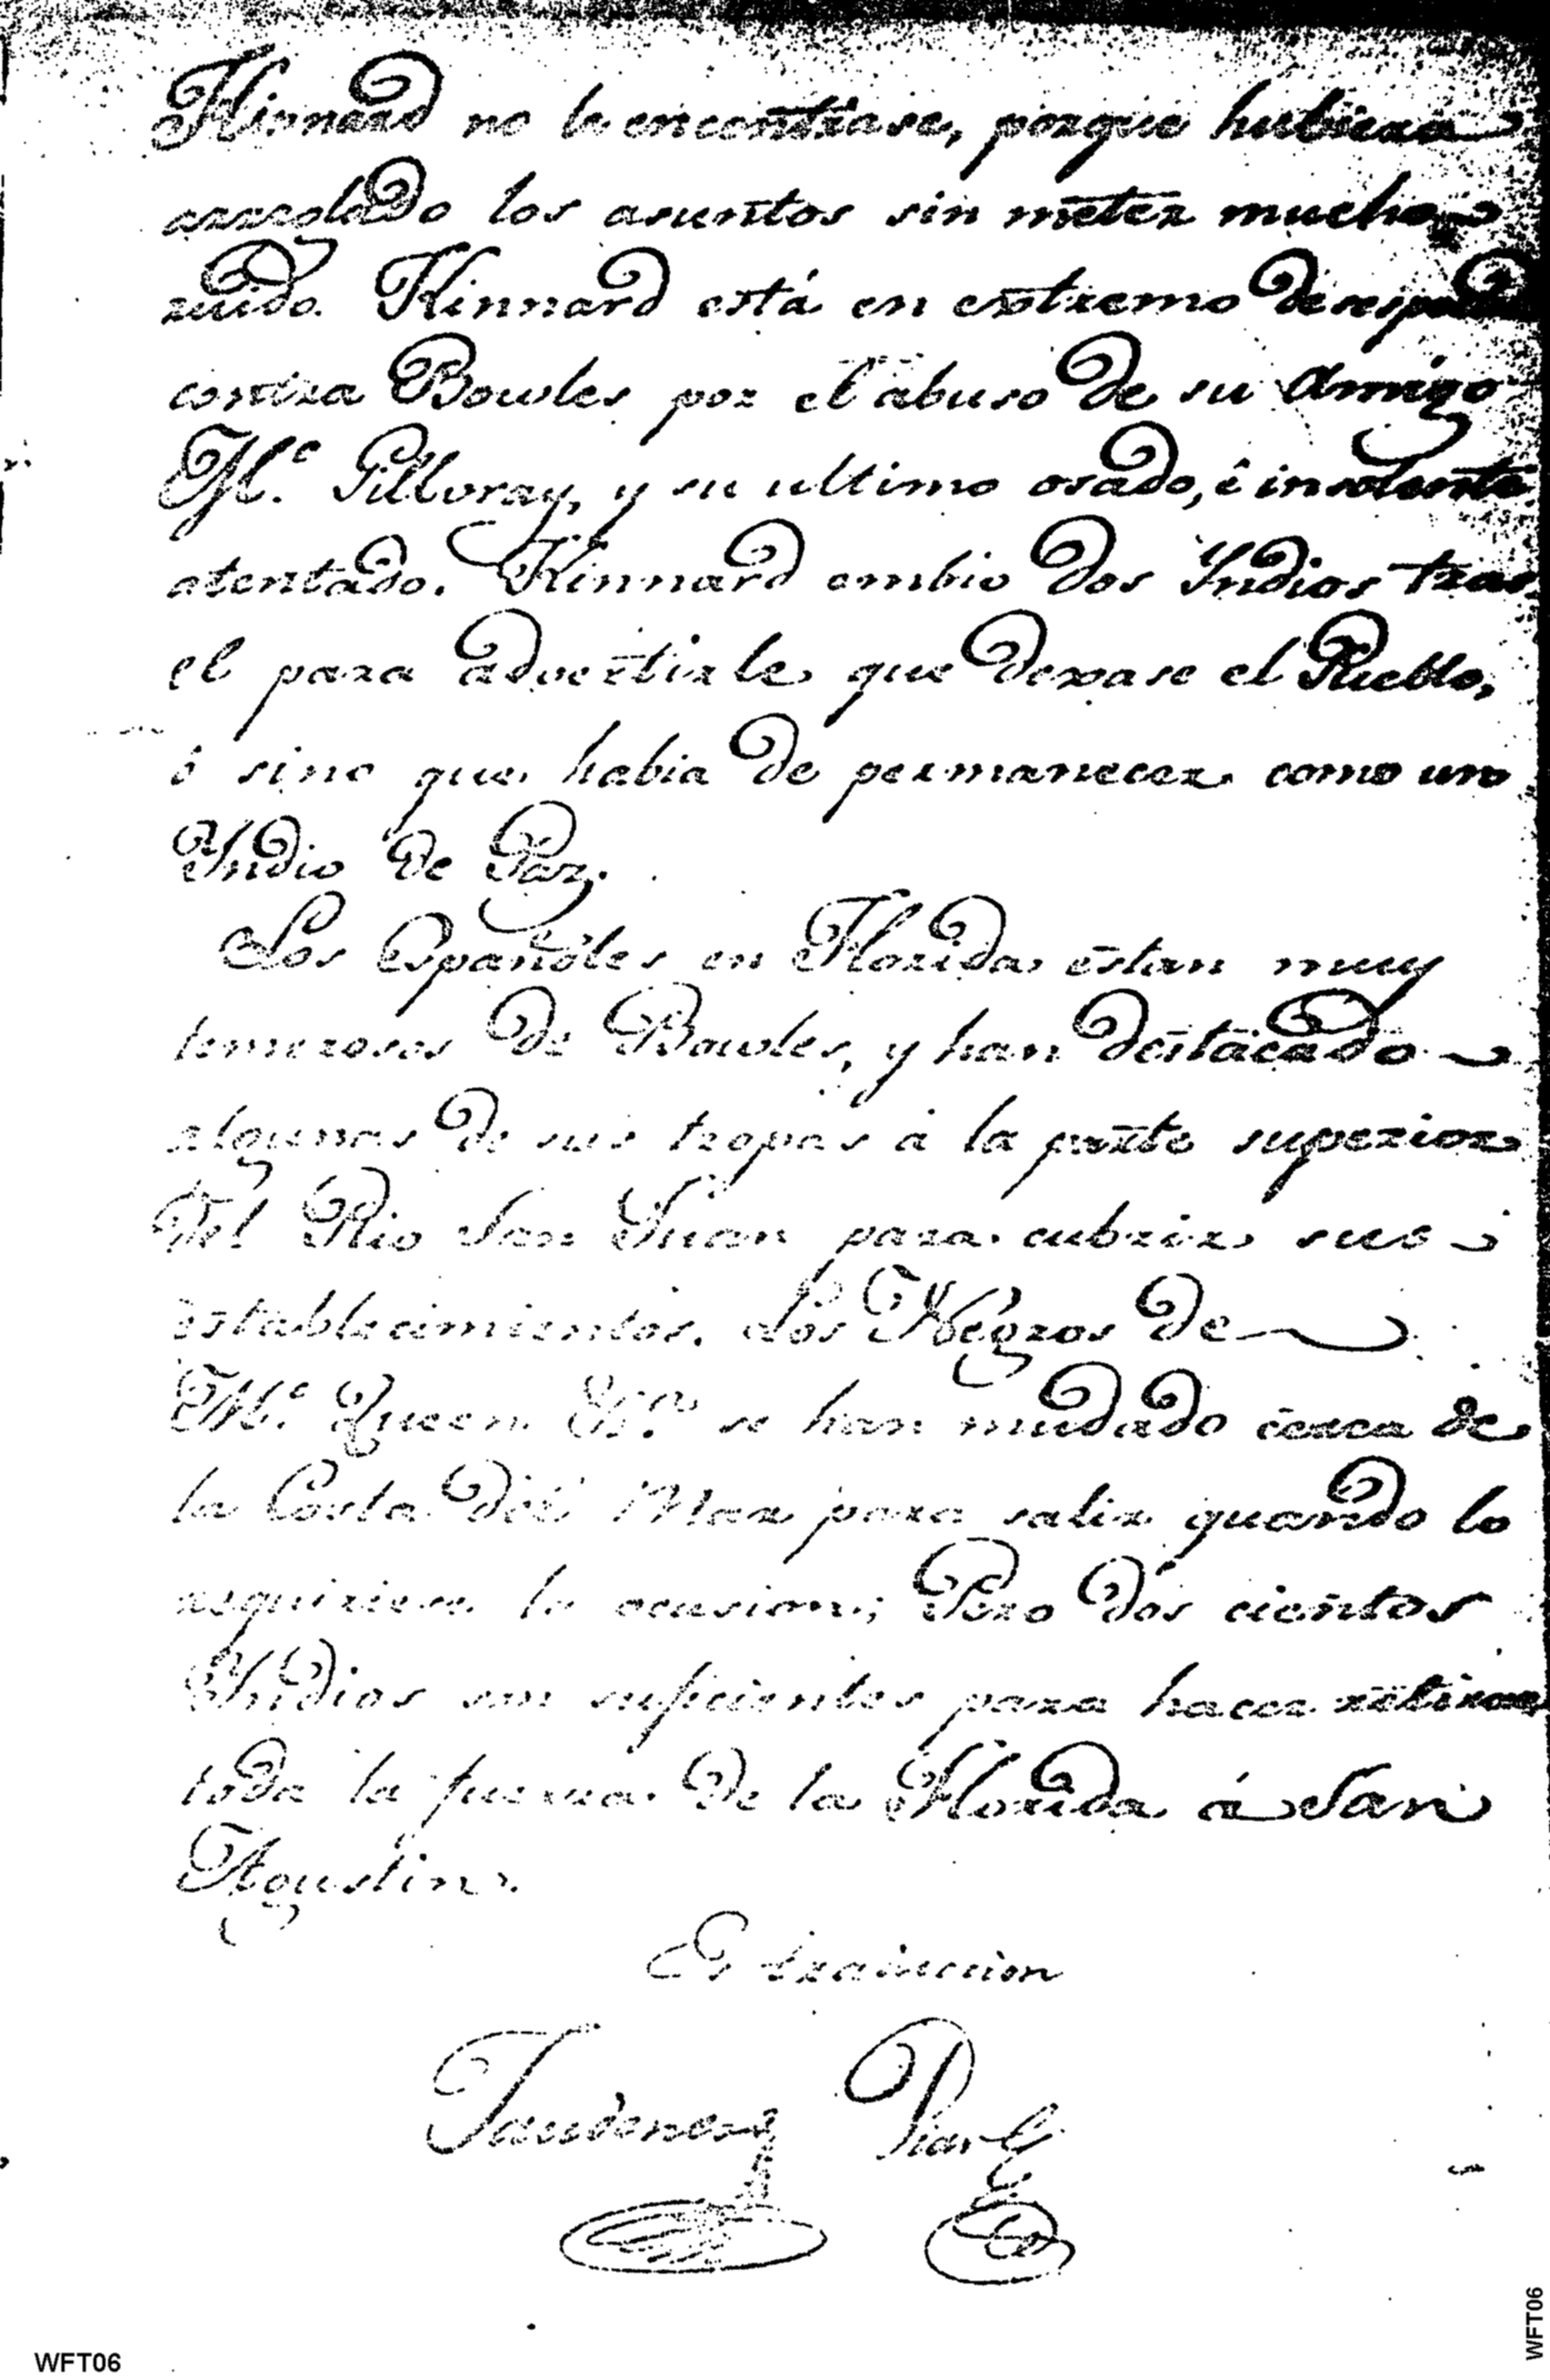 Kinnard no le encontrase, porque hubiera
arreglado los asuntos sin meter mucho
ruido. Kinnard está en extremo
contra Bowles por el abuso de su Amigo
Mc. Gillvray, y su ultimo osado, é insolente
atentado. Kinnard embio dos Indios tras
el para advertirle que dexase el Pueblo,
ó sino que habia de permanecer como un
Indio de Paz.
Los Españoles en Florida estan muy
temerosos de Bowles, y han destacado
algunas de sus tropas á la parte superior
del Rio San Juan para cubrir sus
establecimientos. Los Negros de
Mc. Queen se han mudado cerca de
la Costa del Mar para salir quando lo
requiriese la ocasion; Pero dos cientos
Indios son suficientes para hacer retirar
toda la fuerza de la Florida á San
Agustin.
Es traduccion
Jaudenes
WFT06
WFT06